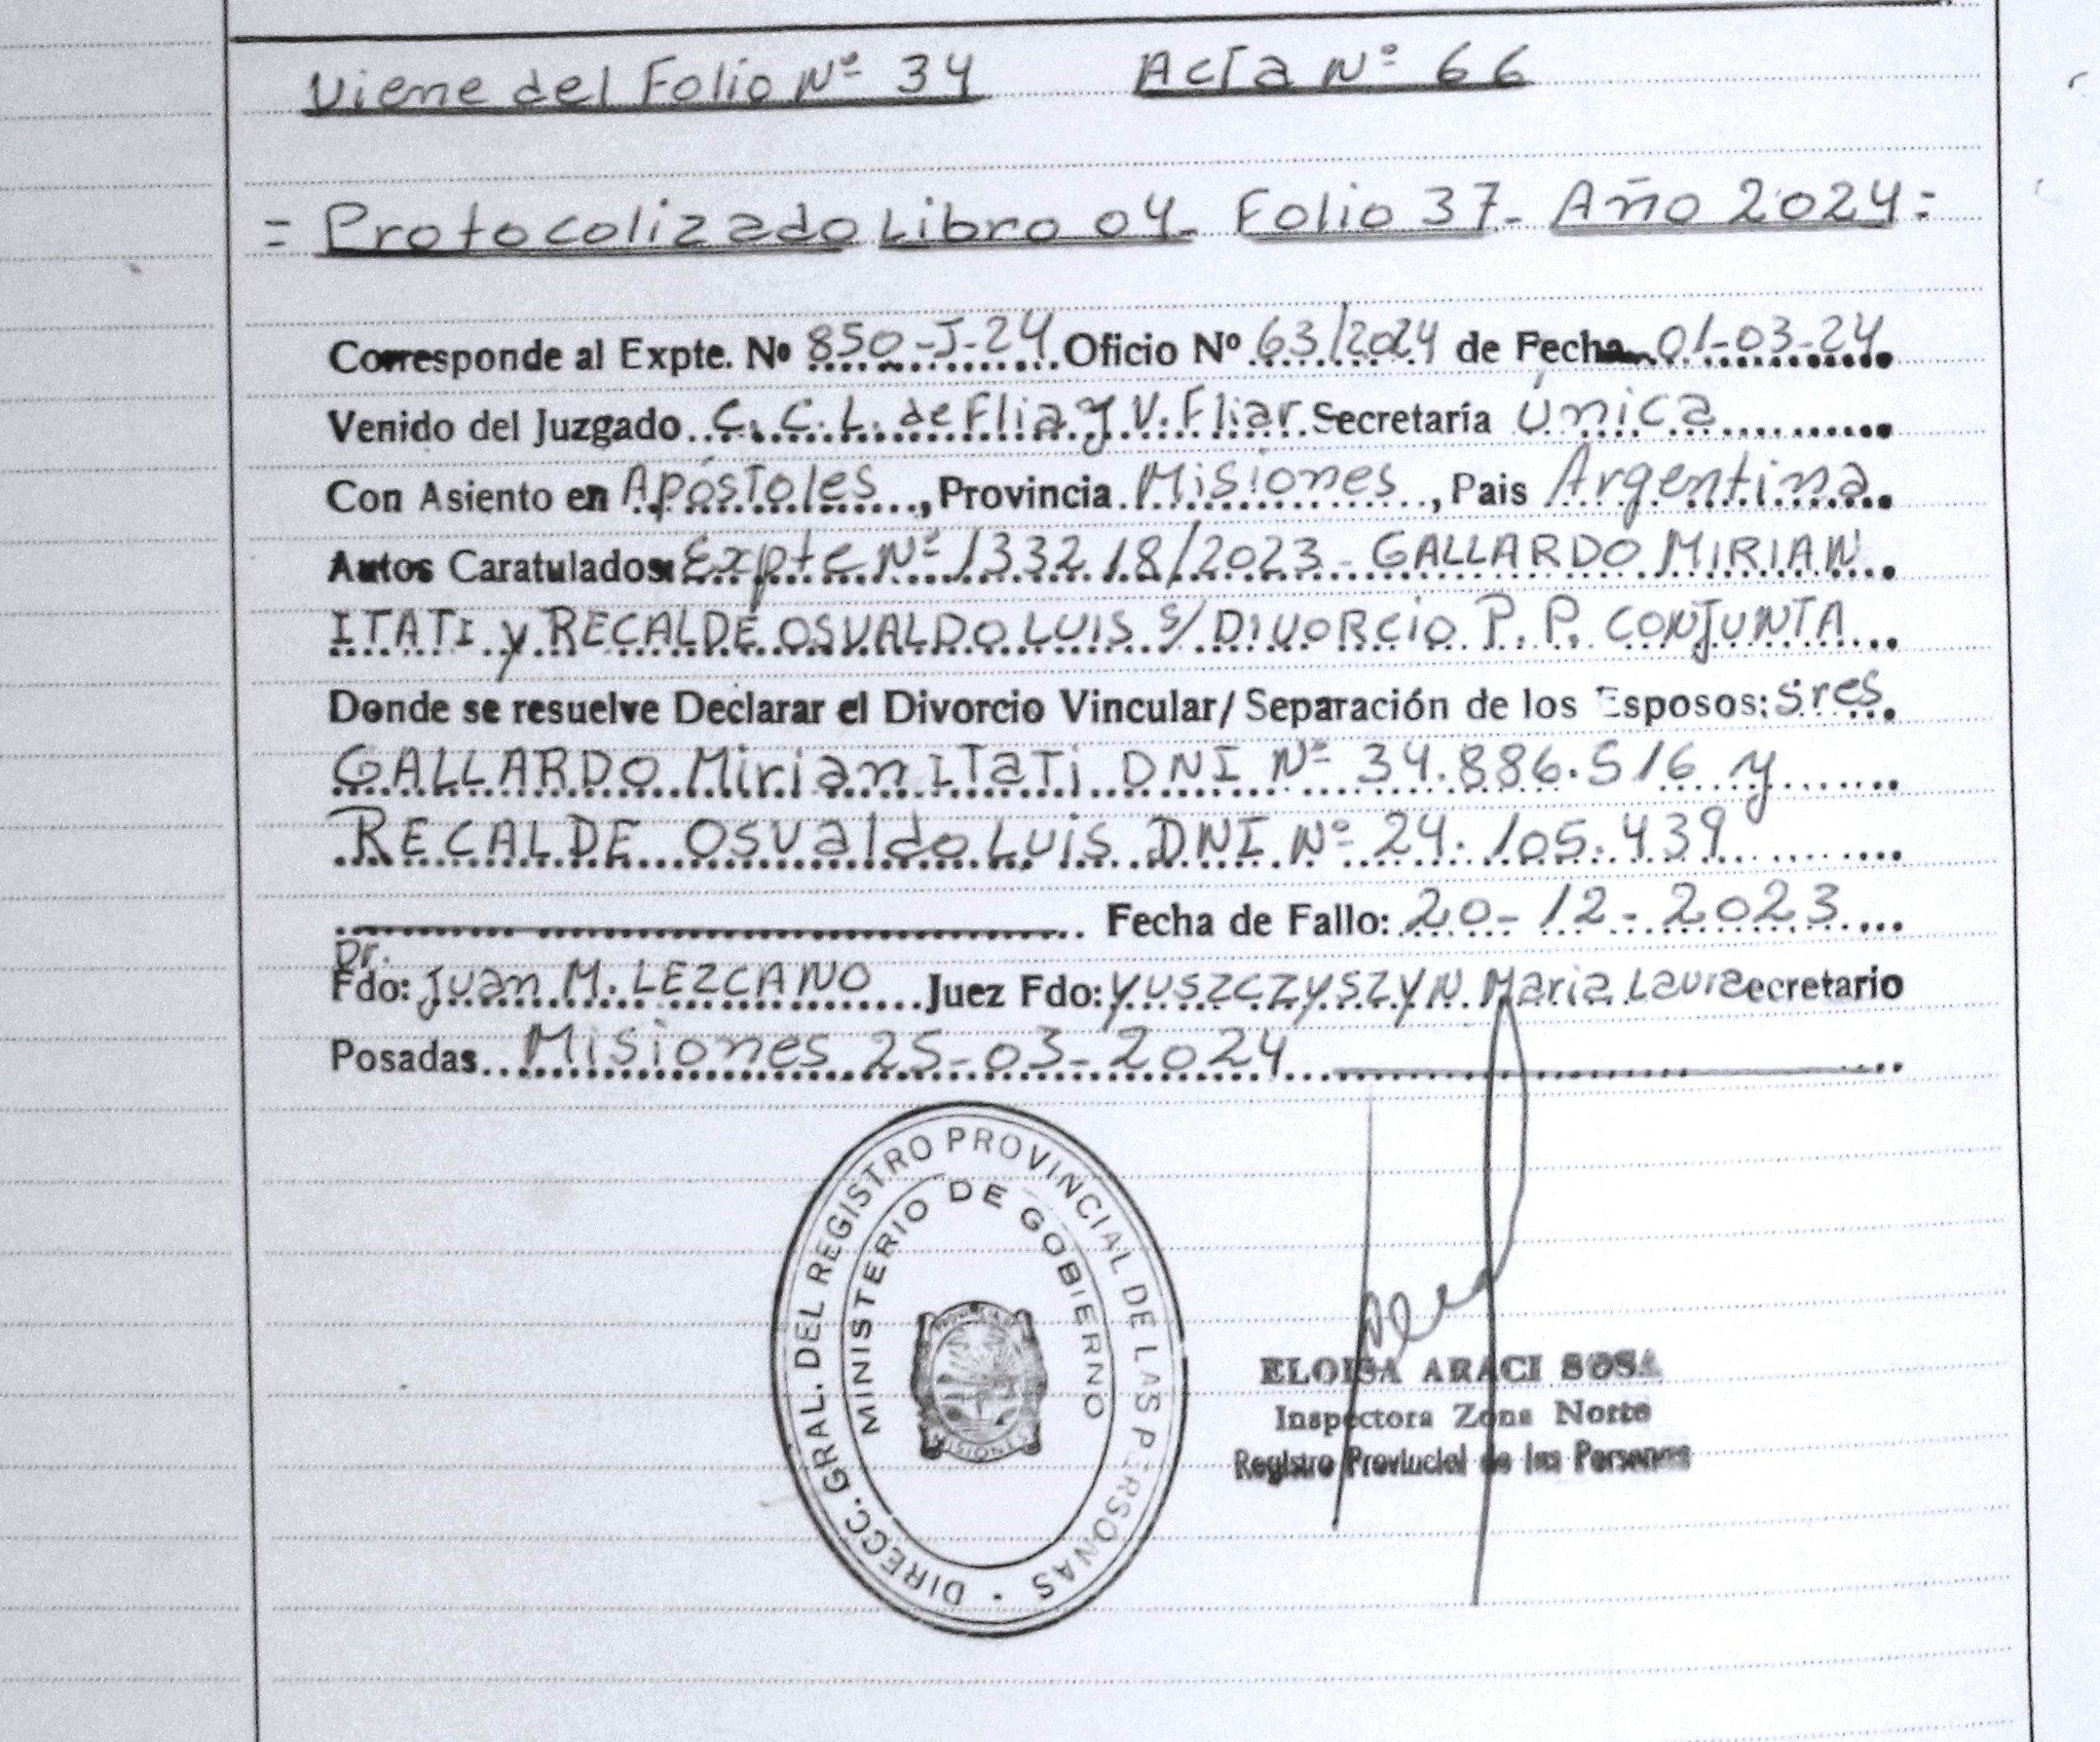 Viene del Folio Nº 34 Acta Nº 66
= Protocolizado Libro 04- Folio 37- Año 2024=
Corresponde al Expte. Nº 850-J-24 Oficio Nº 63/2024 de Fecha 01-03-24
Venido del Juzgado C. C. L. de Flia y V. Fliar Secretaría única
Con Asiento en Apóstoles, Provincia Misiones, Pais Argentina
Autos Caratulados: Expte Nº 133218/2023- GALLARDO MIRIAN
ITATI y RECALDE OSVALDO LUIS s/ DIVORCIO P. P. CONJUNTA
Donde se resuelve Declarar el Divorcio Vincular/ Separación de los Esposos: Sres
GALLARDO Mirian ITATi DNI Nº 34.886.516 y
RECALDE Osvaldo Luis DNI Nº 24.105.439
Fecha de Fallo: 20-12-2023
Dr.
Fdo: Juan M. LEZCANO Juez Fdo: YUSZCZYSZYN Maria Laura ecretario
Posadas Misiones 25-03-2024
DIRECC. GRAL. DEL REGISTRO PROVINCIAL DE LAS PERSONAS
MINISTERIO DE GOBIERNO
MISIONES
ELOISA ARACI SOSA
Inspectora Zona Norte
Registro Provincial de las Personas